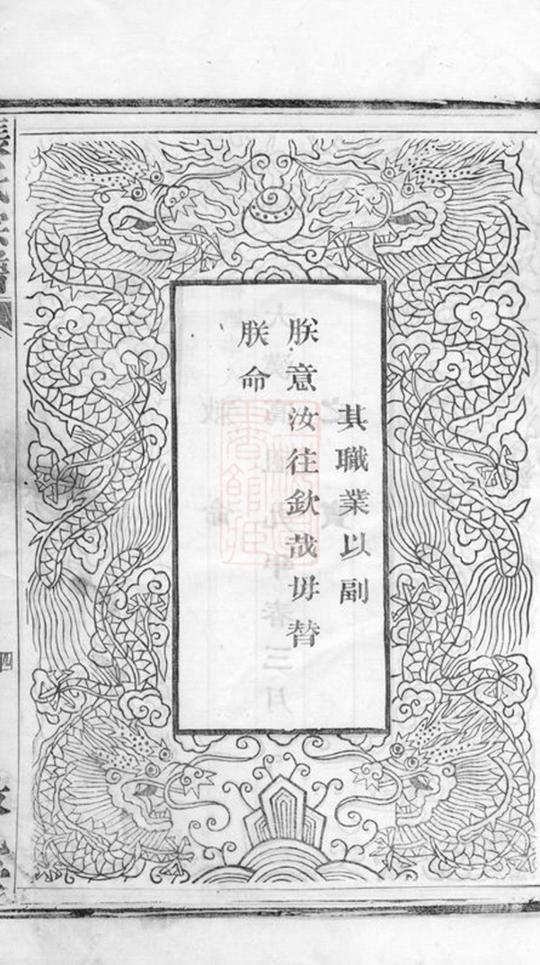 其職業以副
朕意汝往欽哉毋替
朕命
四